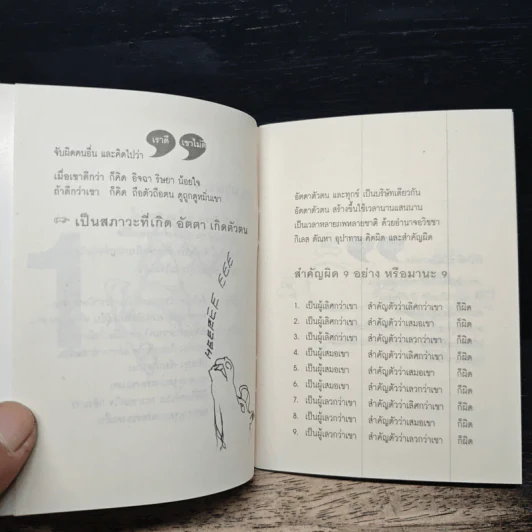 เราดี เขาไม่ดี
จับผิดคนอื่น และคิดไปว่า
เมื่อเขาดีกว่า ก็คิด อิจฉา ริษยา น้อยใจ
ถ้าดีกว่าเขา ก็คิด ถือตัวถือตน ดูถูกดูหมิ่นเขา
เป็นสภาวะที่เกิด อัตตา เกิดตัวตน
อัตตาตัวตน และทุกข์ เป็นบริษัทเดียวกัน
อัตตาตัวตน สร้างขึ้นใช้เวลานานแสนนาน
เป็นเวลาหลายภพหลายชาติ ด้วยอำนาจอวิชชา
กิเลส ตัณหา อุปาทาน คิดผิด และสำคัญผิด
สำคัญผิด 9 อย่าง หรือมานะ 9
1. เป็นผู้เลิศกว่าเขา สำคัญตัวว่าเลิศกว่าเขา ก็ผิด
2. เป็นผู้เลิศกว่าเขา สำคัญตัวว่าเสมอเขา ก็ผิด
3. เป็นผู้เลิศกว่าเขา สำคัญตัวว่าเลวกว่าเขา ก็ผิด
4. เป็นผู้เสมอเขา สำคัญตัวว่าเลิศกว่าเขา ก็ผิด
5. เป็นผู้เสมอเขา สำคัญตัวว่าเสมอเขา ก็ผิด
6. เป็นผู้เสมอเขา สำคัญตัวว่าเลวกว่าเขา ก็ผิด
7. เป็นผู้เลวกว่าเขา สำคัญตัวว่าเลิศกว่าเขา ก็ผิด
8. เป็นผู้เลวกว่าเขา สำคัญตัวว่าเสมอเขา ก็ผิด
9. เป็นผู้เลวกว่าเขา สำคัญตัวว่าเลวกว่าเขา ก็ผิด